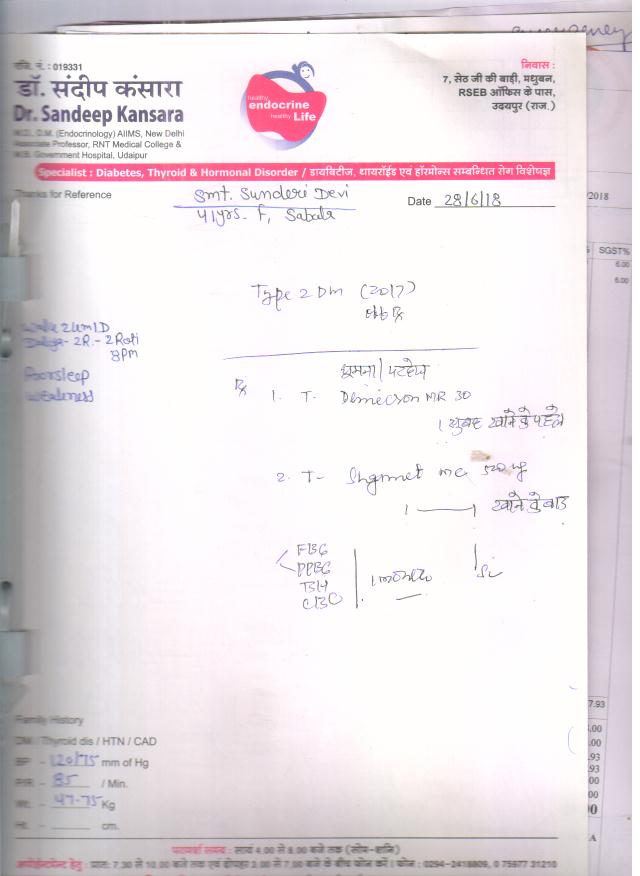 emergency
रजि. नं. : 019331
डॉ. संदीप कंसारा
Dr. Sandeep Kansara
M.D., D.M. (Endocrinology) AIIMS, New Delhi
Associate Professor, RNT Medical College &
M.B. Government Hospital, Udaipur
healthy
endocrine
healthy Life
निवास :
7, सेठ जी की बाड़ी, मधुबन,
RSEB ऑफिस के पास,
उदयपुर (राज.)
Specialist : Diabetes, Thyroid & Hormonal Disorder / डायबिटीज, थायरॉईड एवं हॉरमोन्स सम्बन्धित रोग विशेषज्ञ
Thanks for Reference
Smt. Sunderi Devi
41yrs. F, Sabala
Date 28/6/18
2018
SGST%
6.00
6.00
Type 2 DM (2017)
Rx
2R.- 2Roti
8pm
Poor sleep
Weakness
घूमना / परहेज
Rx
1. T. MR 30
1 सुबह खाने के पहले
2. T-
1 — 1 खाने के बाद
FBG
PPBG
TSH
CBC
7.93
.00
.00
.93
.93
00
00
0
A
Family History
DM / Thyroid dis / HTN / CAD
BP - 120/75 mm of Hg
P/R - 85 / Min.
Wt. - 47.75 Kg
Ht. - cm.
परामर्श समय : सायं 4.00 से 8.00 बजे तक (सोम-शनि)
अपोईन्टमेन्ट हेतु : प्रातः 7.30 से 10.00 बजे तक एवं दोपहर 2.00 से 7.00 बजे के बीच फोन करें । फोन : 0294-2418809, 0 75977 31210